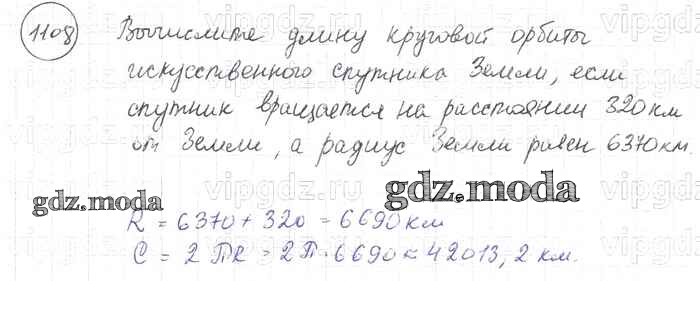 1108
Вычислите длину круговой орбиты
искусственного спутника Земли, если
спутник вращается на расстоянии 320 км
от Земли, а радиус Земли равен 6370 км.
gdz.moda
gdz.moda
R = 6370 + 320 = 6690 км
C = 2ПR = 2П·6690 ≈ 42013,2 км.